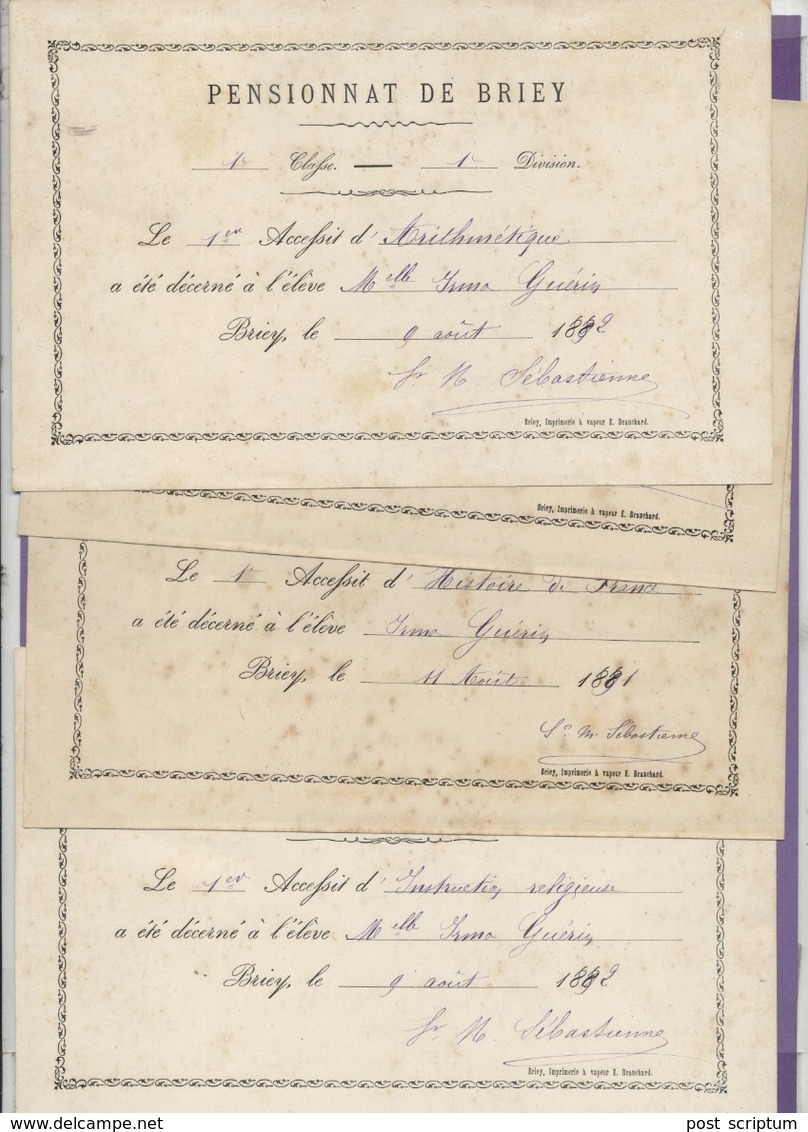 PENSIONNAT DE BRIEY
1e Classe. — 1e Division.
Le 1er Accessit d'Arithmétique
a été décerné à l'élève Melle Irma Guérin
Briey, le 9 août 1892
Sr M. Sébastienne
Briey, Imprimerie à vapeur E. Branchard.
Briey, Imprimerie à vapeur E. Branchard.
Le 1r Accessit d'Histoire de France
a été décerné à l'élève Irma Guérin
Briey, le 11 Août 1891
Sr M. Sébastienne
Briey, Imprimerie à vapeur E. Branchard.
Le 1er Accessit d'Instruction religieuse
a été décerné à l'élève Melle Irma Guérin
Briey, le 9 août 1892
Sr M. Sébastienne
Briey, Imprimerie à vapeur E. Branchard.
post scriptum